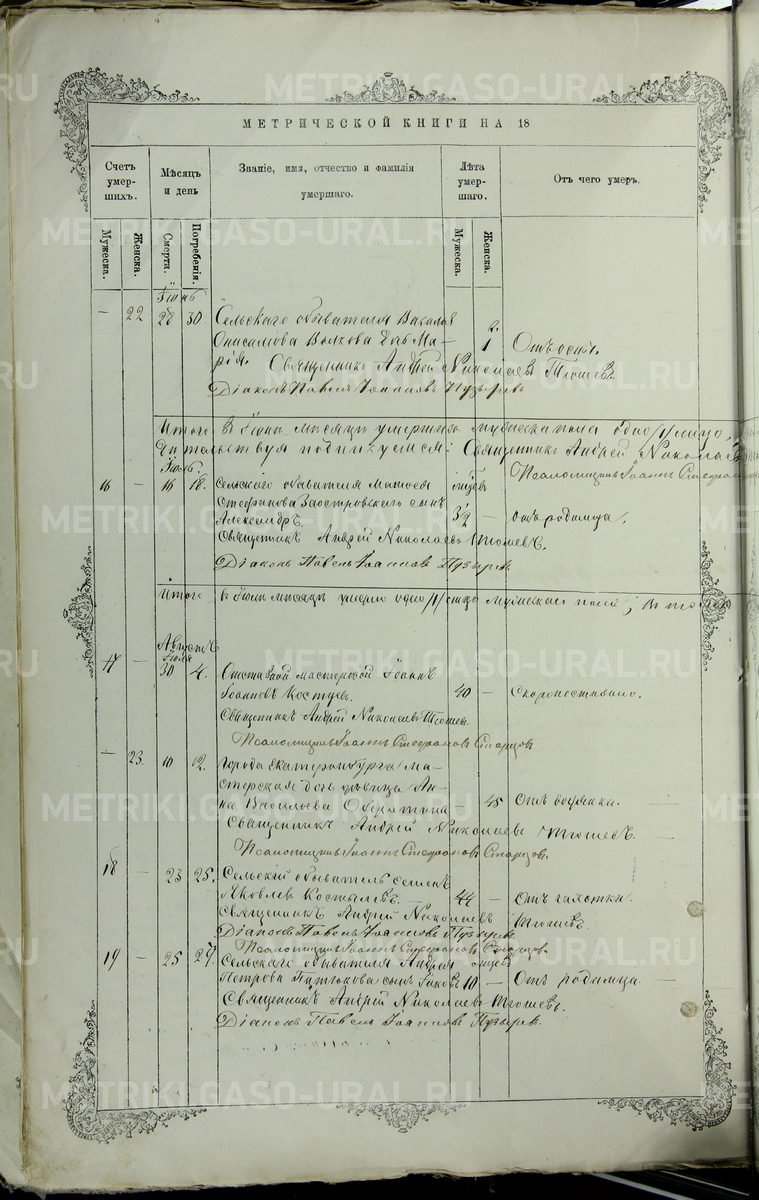 МЕТРИЧЕСКОЙ КНИГИ НА 18
Счетъ умер- шихъ. Мѣсяцъ и день Званіе, имя, отчество и фамилія умершаго. Лѣта умер- шаго. Отъ чего умеръ.
Мужеска. Женска. Смерти. Погребенія. Мужеска. Женска.
Іюнь
— 22 28 30 Сельскаго обывателя
Онисимова Волкова дочь Ма- 1 Отъ оспы.
рія. Священникъ Андрей Николаевъ Тюшевъ.
Діаконъ Павелъ Іоанновъ Пузыревъ
Итого въ Іюнѣ мѣсяцѣ умершихъ мужеска пола одно /1/ лицо,
подпискуемся: Священникъ Андрей Николаевъ
Іюль Псаломщикъ Іоаннъ Стефановъ
16 — 16 18 Сельскаго обывателя Матвея
Стефанова Заостровскаго сынъ 3½ — отъ родимца.
Александръ.
Священникъ Андрей Николаевъ Тюшевъ.
Діаконъ Павелъ Іоанновъ Пузыревъ
Итого въ Іюлѣ мѣсяцѣ умерло одно /1/ лицо мужескаго пола; въ
Августъ
Іюля
17 — 30 4. Отставной мастерской Іоаннъ
Іоанновъ 40 — Скоропостижно.
Священникъ Андрей Николаевъ Тюшевъ
Псаломщикъ Іоаннъ Стефановъ Старцовъ
— 23. 10 12. Города Екатеринбурга ма-
стерская дочь дѣвица Ан-
на Васильева — 45 Отъ
Священникъ Андрей Николаевъ Тюшевъ.
Псаломщикъ Іоаннъ Стефановъ Старцовъ.
18 — 23 25. Сельскій обыватель Семенъ
Яковлевъ Костылевъ. 44 — Отъ чахотки.
Священникъ Андрей Николаевъ Тюшевъ.
Діаконъ Павелъ Іоанновъ Пузыревъ.
Псаломщикъ Іоаннъ Стефановъ Старцовъ
19 — 25 27. Сельскаго обывателя Андрея
Петрова сынъ Іаковъ 10 — Отъ родимца.
Священникъ Андрей Николаевъ Тюшевъ.
Діаконъ Павелъ Іоанновъ Пузыревъ.
METRIKI.GASO-URAL.RU